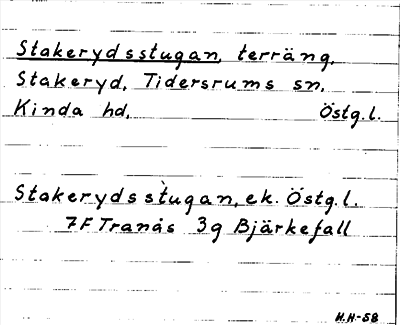 Stakerydsstugan, terräng,
Stakeryd, Tidersrums sn,
Kinda hd, Östg.l.
Stakerydsstugan, ek. Östg.l.
7F Tranås 3g Bjärkefall
H.H-58